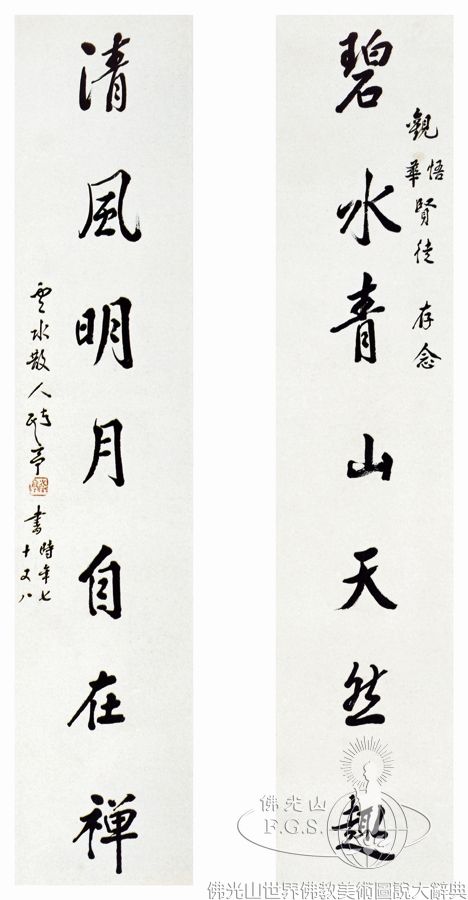 碧水青山天然趣
觀悟華賢徒 存念
清風明月自在禪
雲水散人 亭 書 時年七十又八
佛光山
F.G.S.
佛光山世界佛教美術圖說大辭典